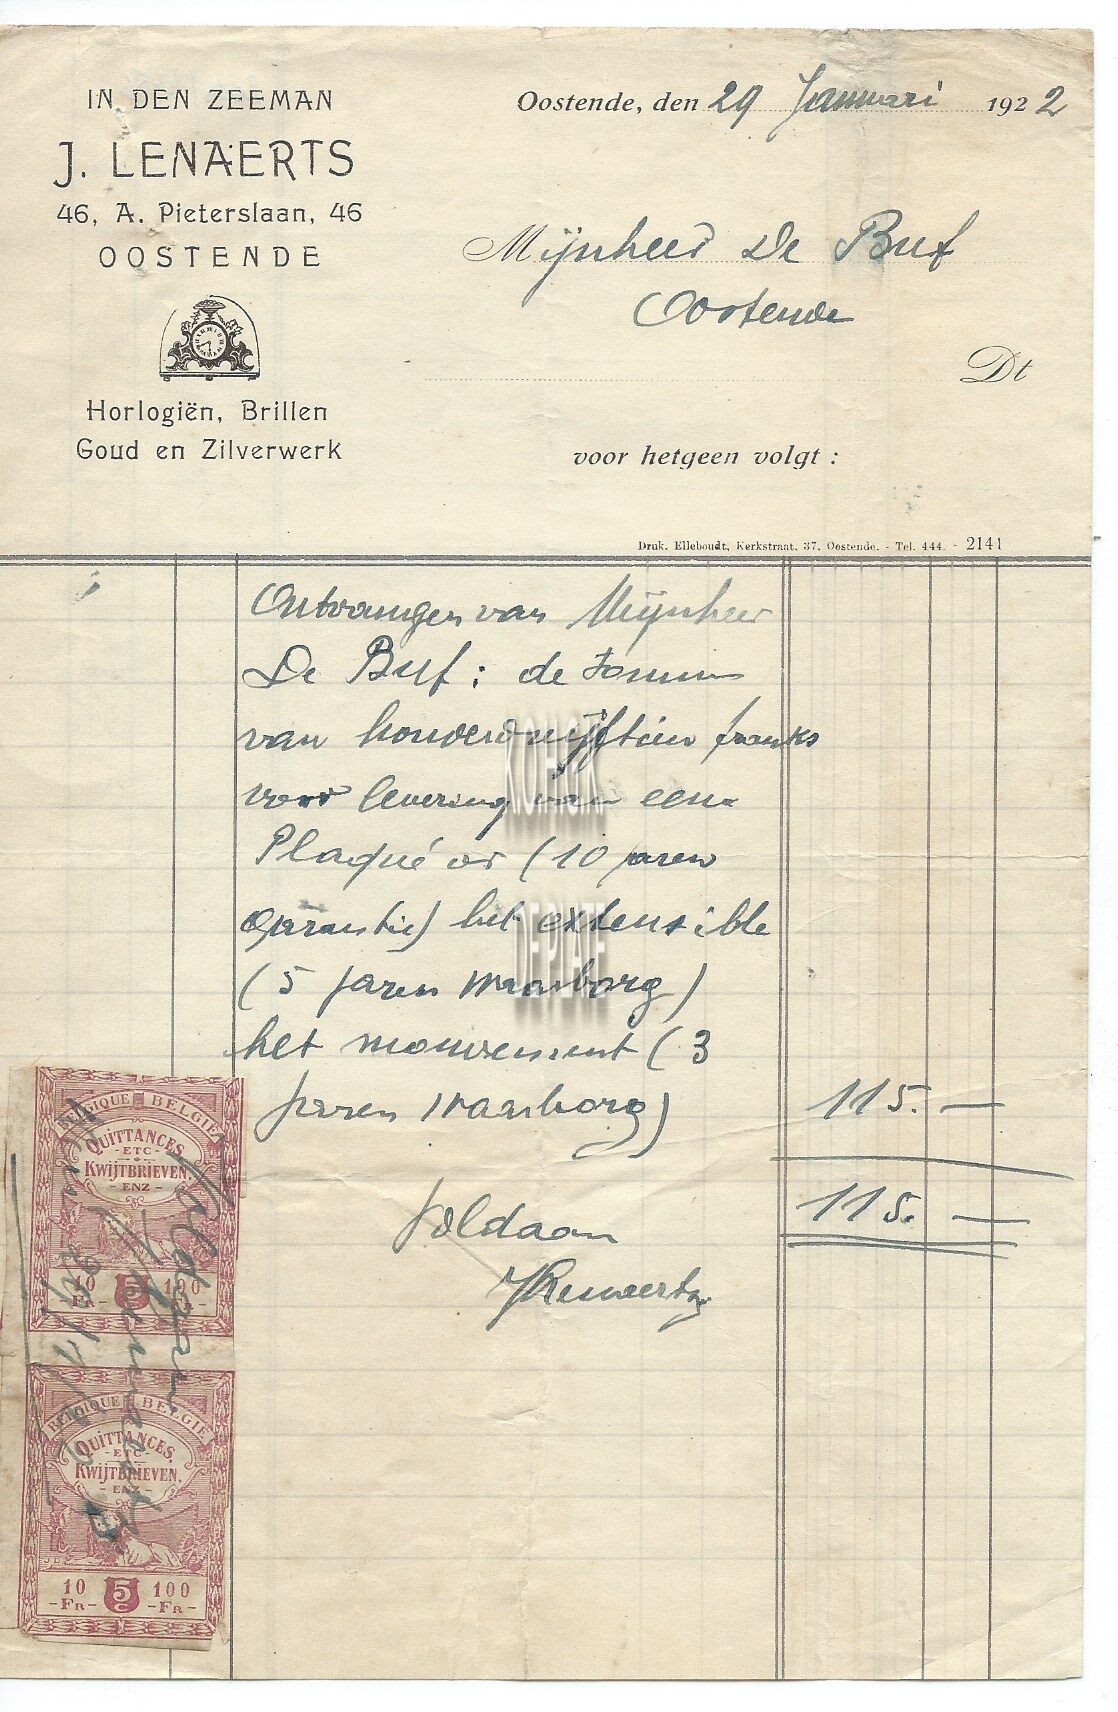 IN DEN ZEEMAN
J. LENAERTS
46, A. Pieterslaan, 46
OOSTENDE
Horlogiën, Brillen
Goud en Zilverwerk
Oostende, den 29 Januari 1922
Mijnheer De Buf
Oostende
Dt
voor hetgeen volgt :
Druk. Elleboudt, Kerkstraat, 37, Oostende. - Tel. 444. - 2141
Ontvangen van Mijnheer
De Buf : de somme
van honderdvijftien franks
voor levering van een
Plaqué or (10 jaren
garantie) het extensible
(5 jaren waarborg)
het mouvement (3
jaren waarborg) 115. —
115. —
Voldaan
JLenaerts
KON. H.K.
DE PLATE
BELGIQUE BELGIË
QUITTANCES,
- ETC -
KWIJTBRIEVEN,
- ENZ -
10 5 100
- FR - C - FR -
Voldaan
BELGIQUE BELGIË
QUITTANCES,
- ETC -
KWIJTBRIEVEN,
- ENZ -
10 5 100
- FR - C - FR -